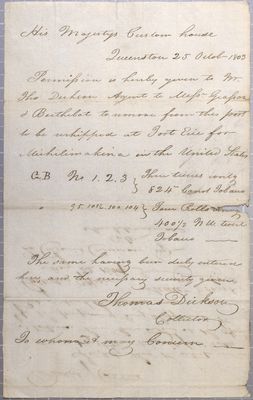 His Majestys Custom house
Queenston 25 Octob. 1803
Permission is hereby given to Mr.
Tho Dickson Agent to Messrs
& Berthelot to remove from this port
to be reshipped at Fort Erie for
Michilimakina in the United States
G.B No 1. 2. 3 } Three tierces only
824 lb Tobaco
} Four
400 lb twist
Tobaco
The same having been duly entered
here and the necessary security given
Thomas Dickson
Collector
To whom it may Concern